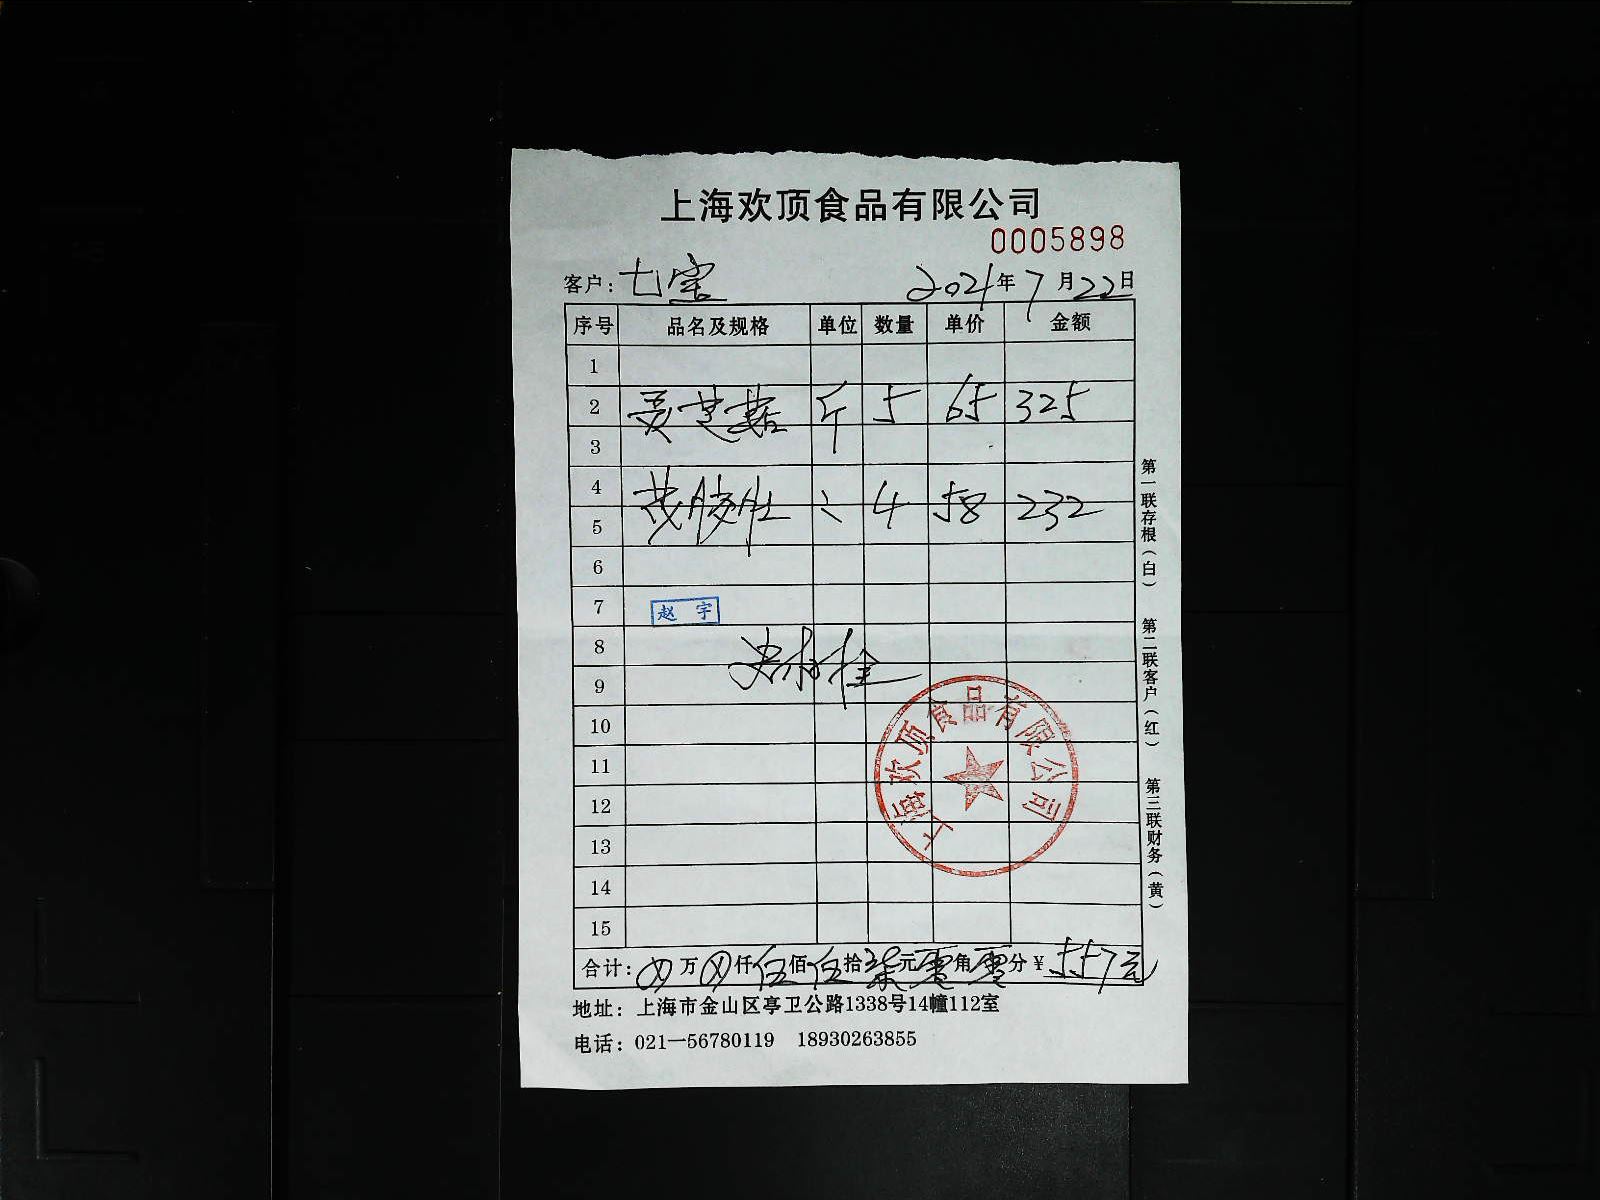 上海欢顶食品有限公司
0005898
客户：七宝 2021年7月22日
序号 品名及规格 单位 数量 单价 金额
1
2 斤 5 65 325
3
4
5 4 58 232
6
7 赵宇
8
9
10
11
12
13
14
15
合计：万 仟 伍佰伍拾柒元零角零分￥557元
地址：上海市金山区亭卫公路1338号14幢112室
电话：021—56780119 18930263855
第一联存根（白） 第二联客户（红） 第三联财务（黄）
上海欢顶食品有限公司